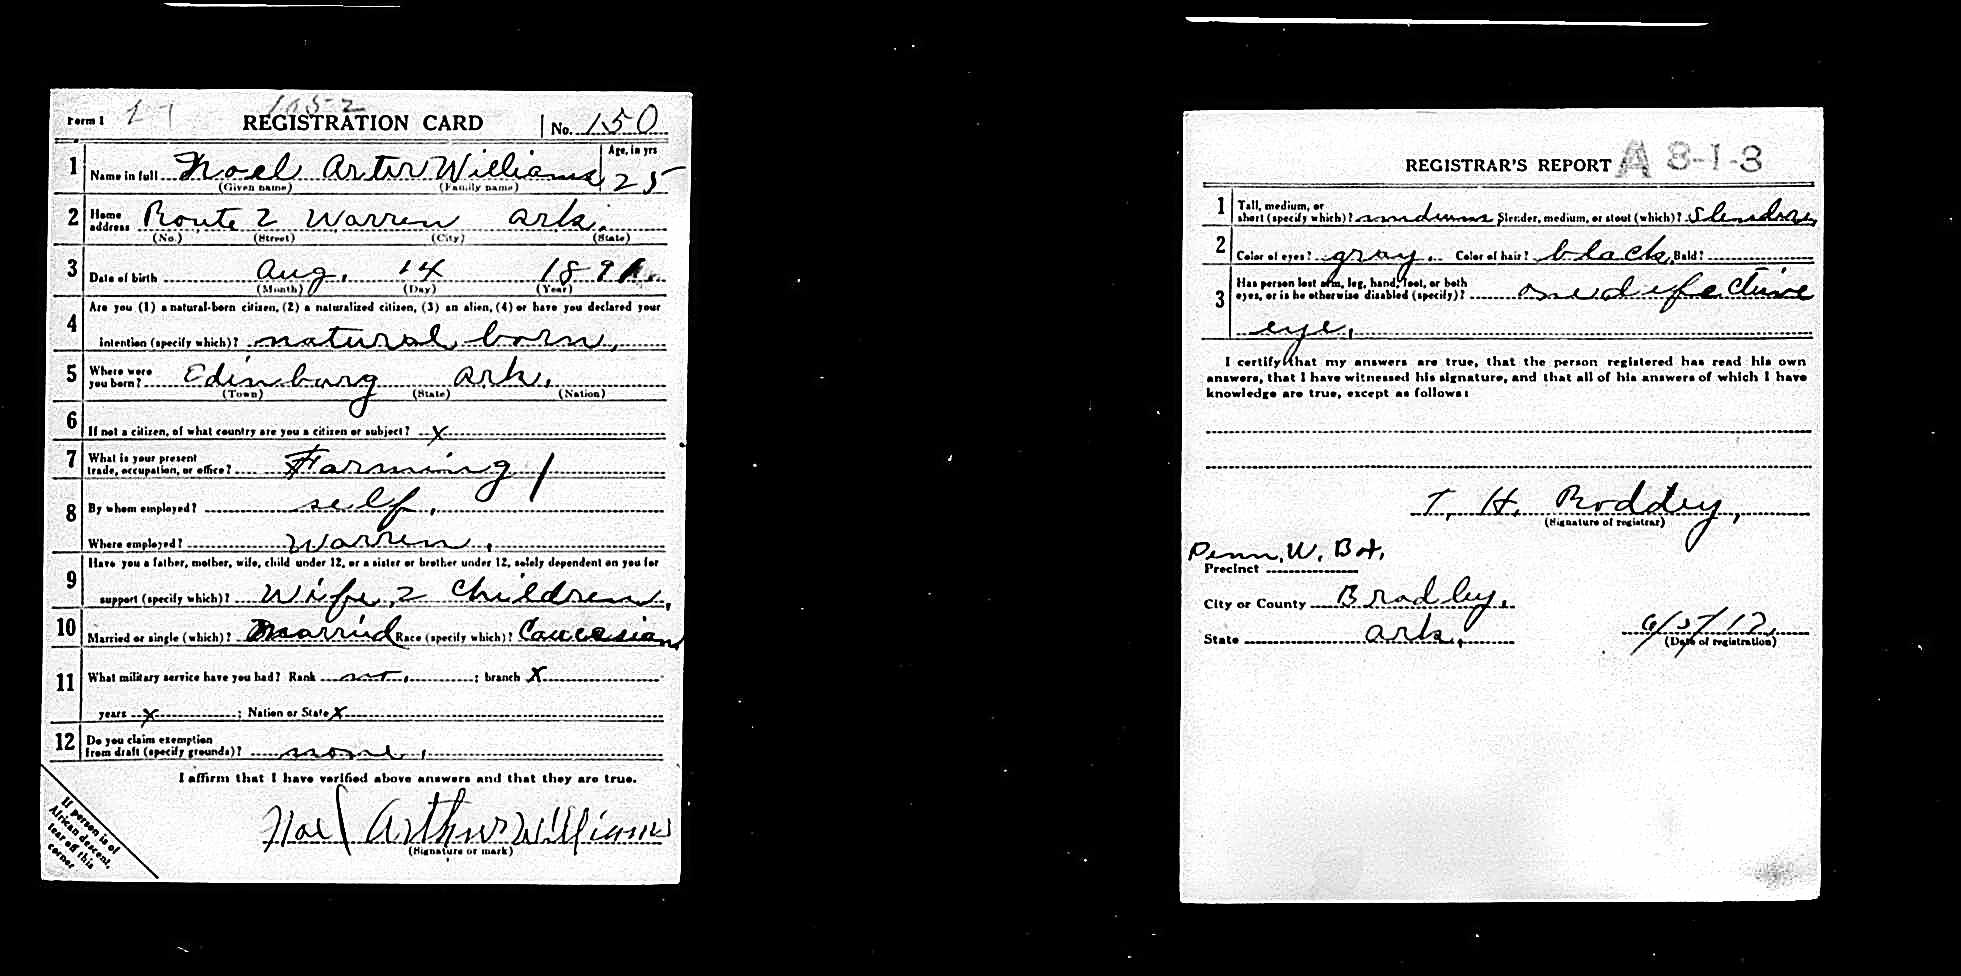 Form 1 1052 REGISTRATION CARD No. 150
1 Name in full Noel Arter Williams Age, in yrs 25
(Given name) (Family name)
2 Home address Route 2 Warren Ark.
(No.) (Street) (City) (State)
3 Date of birth Aug. 14 189
(Month) (Day) (Year)
4 Are you (1) a natural-born citizen, (2) a naturalized citizen, (3) an alien, (4) or have you declared your
intention (specify which)? natural born.
5 Where were you born? Edinburg Ark.
(Town) (State) (Nation)
6 If not a citizen, of what country are you a citizen or subject? x
7 What is your present trade, occupation, or office? Farming
8 By whom employed? self.
Where employed? Warren.
9 Have you a father, mother, wife, child under 12, or a sister or brother under 12, solely dependent on you for
support (specify which)? Wife, 2 Children,
10 Married or single (which)? Married Race (specify which)? Caucasian
11 What military service have you had? Rank no. ; branch x
years x ; Nation or State x
12 Do you claim exemption from draft (specify grounds)? none.
I affirm that I have verified above answers and that they are true.
Noel Arthur Williams
(Signature or mark)
If person is of
African descent,
tear off this
corner
REGISTRAR'S REPORT A 3-1-3
1 Tall, medium, or short (specify which)? medium Slender, medium, or stout (which)? Slender
2 Color of eyes? gray. Color of hair? black Bald?
3 Has person lost arm, leg, hand, foot, or both eyes, or is he otherwise disabled (specify)? one defective
eye.
I certify that my answers are true, that the person registered has read his own
answers, that I have witnessed his signature, and that all of his answers of which I have
knowledge are true, except as follows:
T. H. Roddey,
(Signature of registrar)
Penn. W. Bx.
Precinct
City or County Bradley.
State Ark. 6/5/17.
(Date of registration)